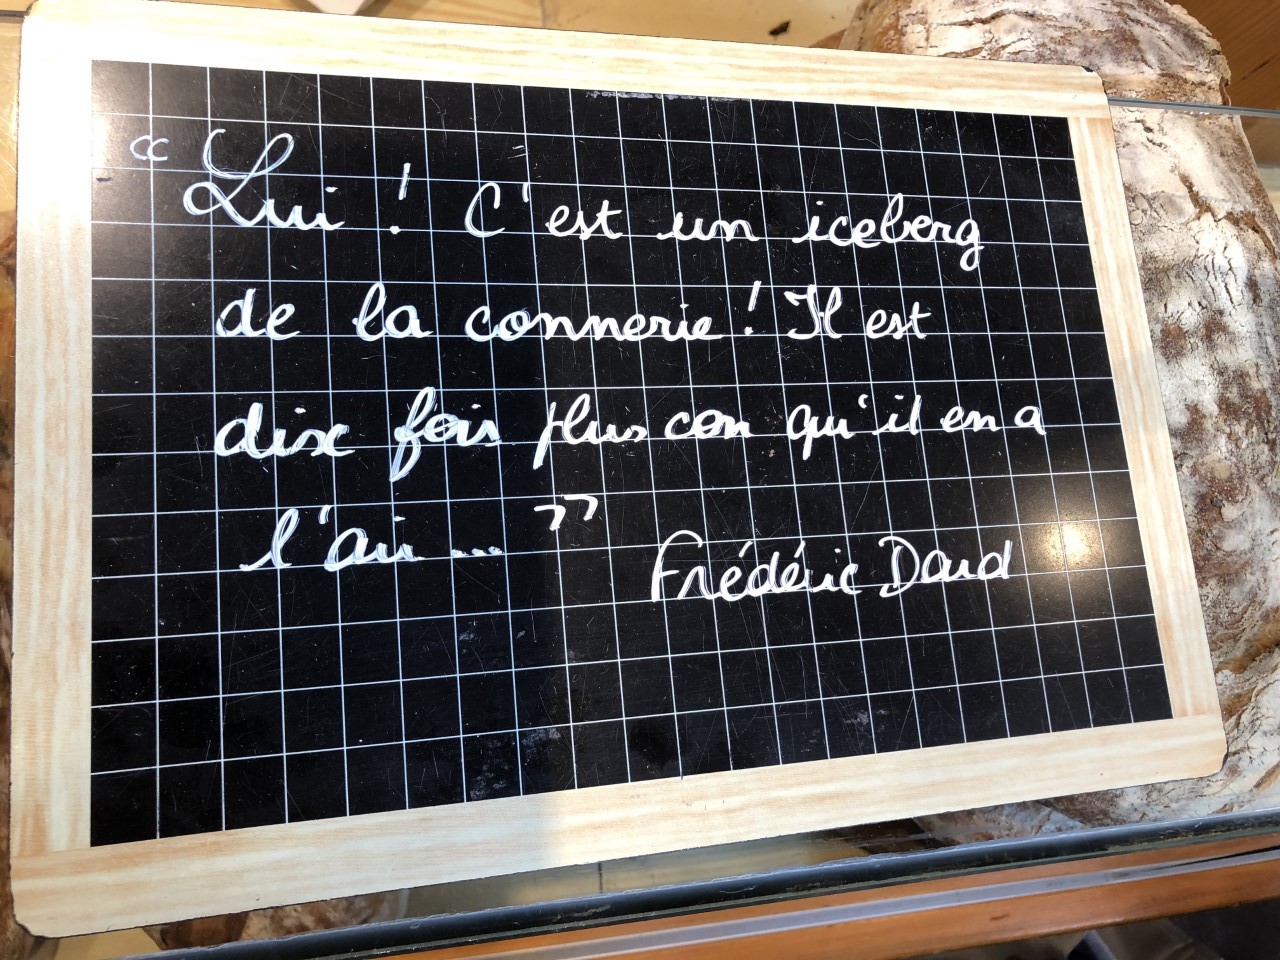 “ Lui ! C'est un iceberg
de la connerie ! Il est
dix fois plus con qu'il en a
l'air... ”
Frédéric Dard